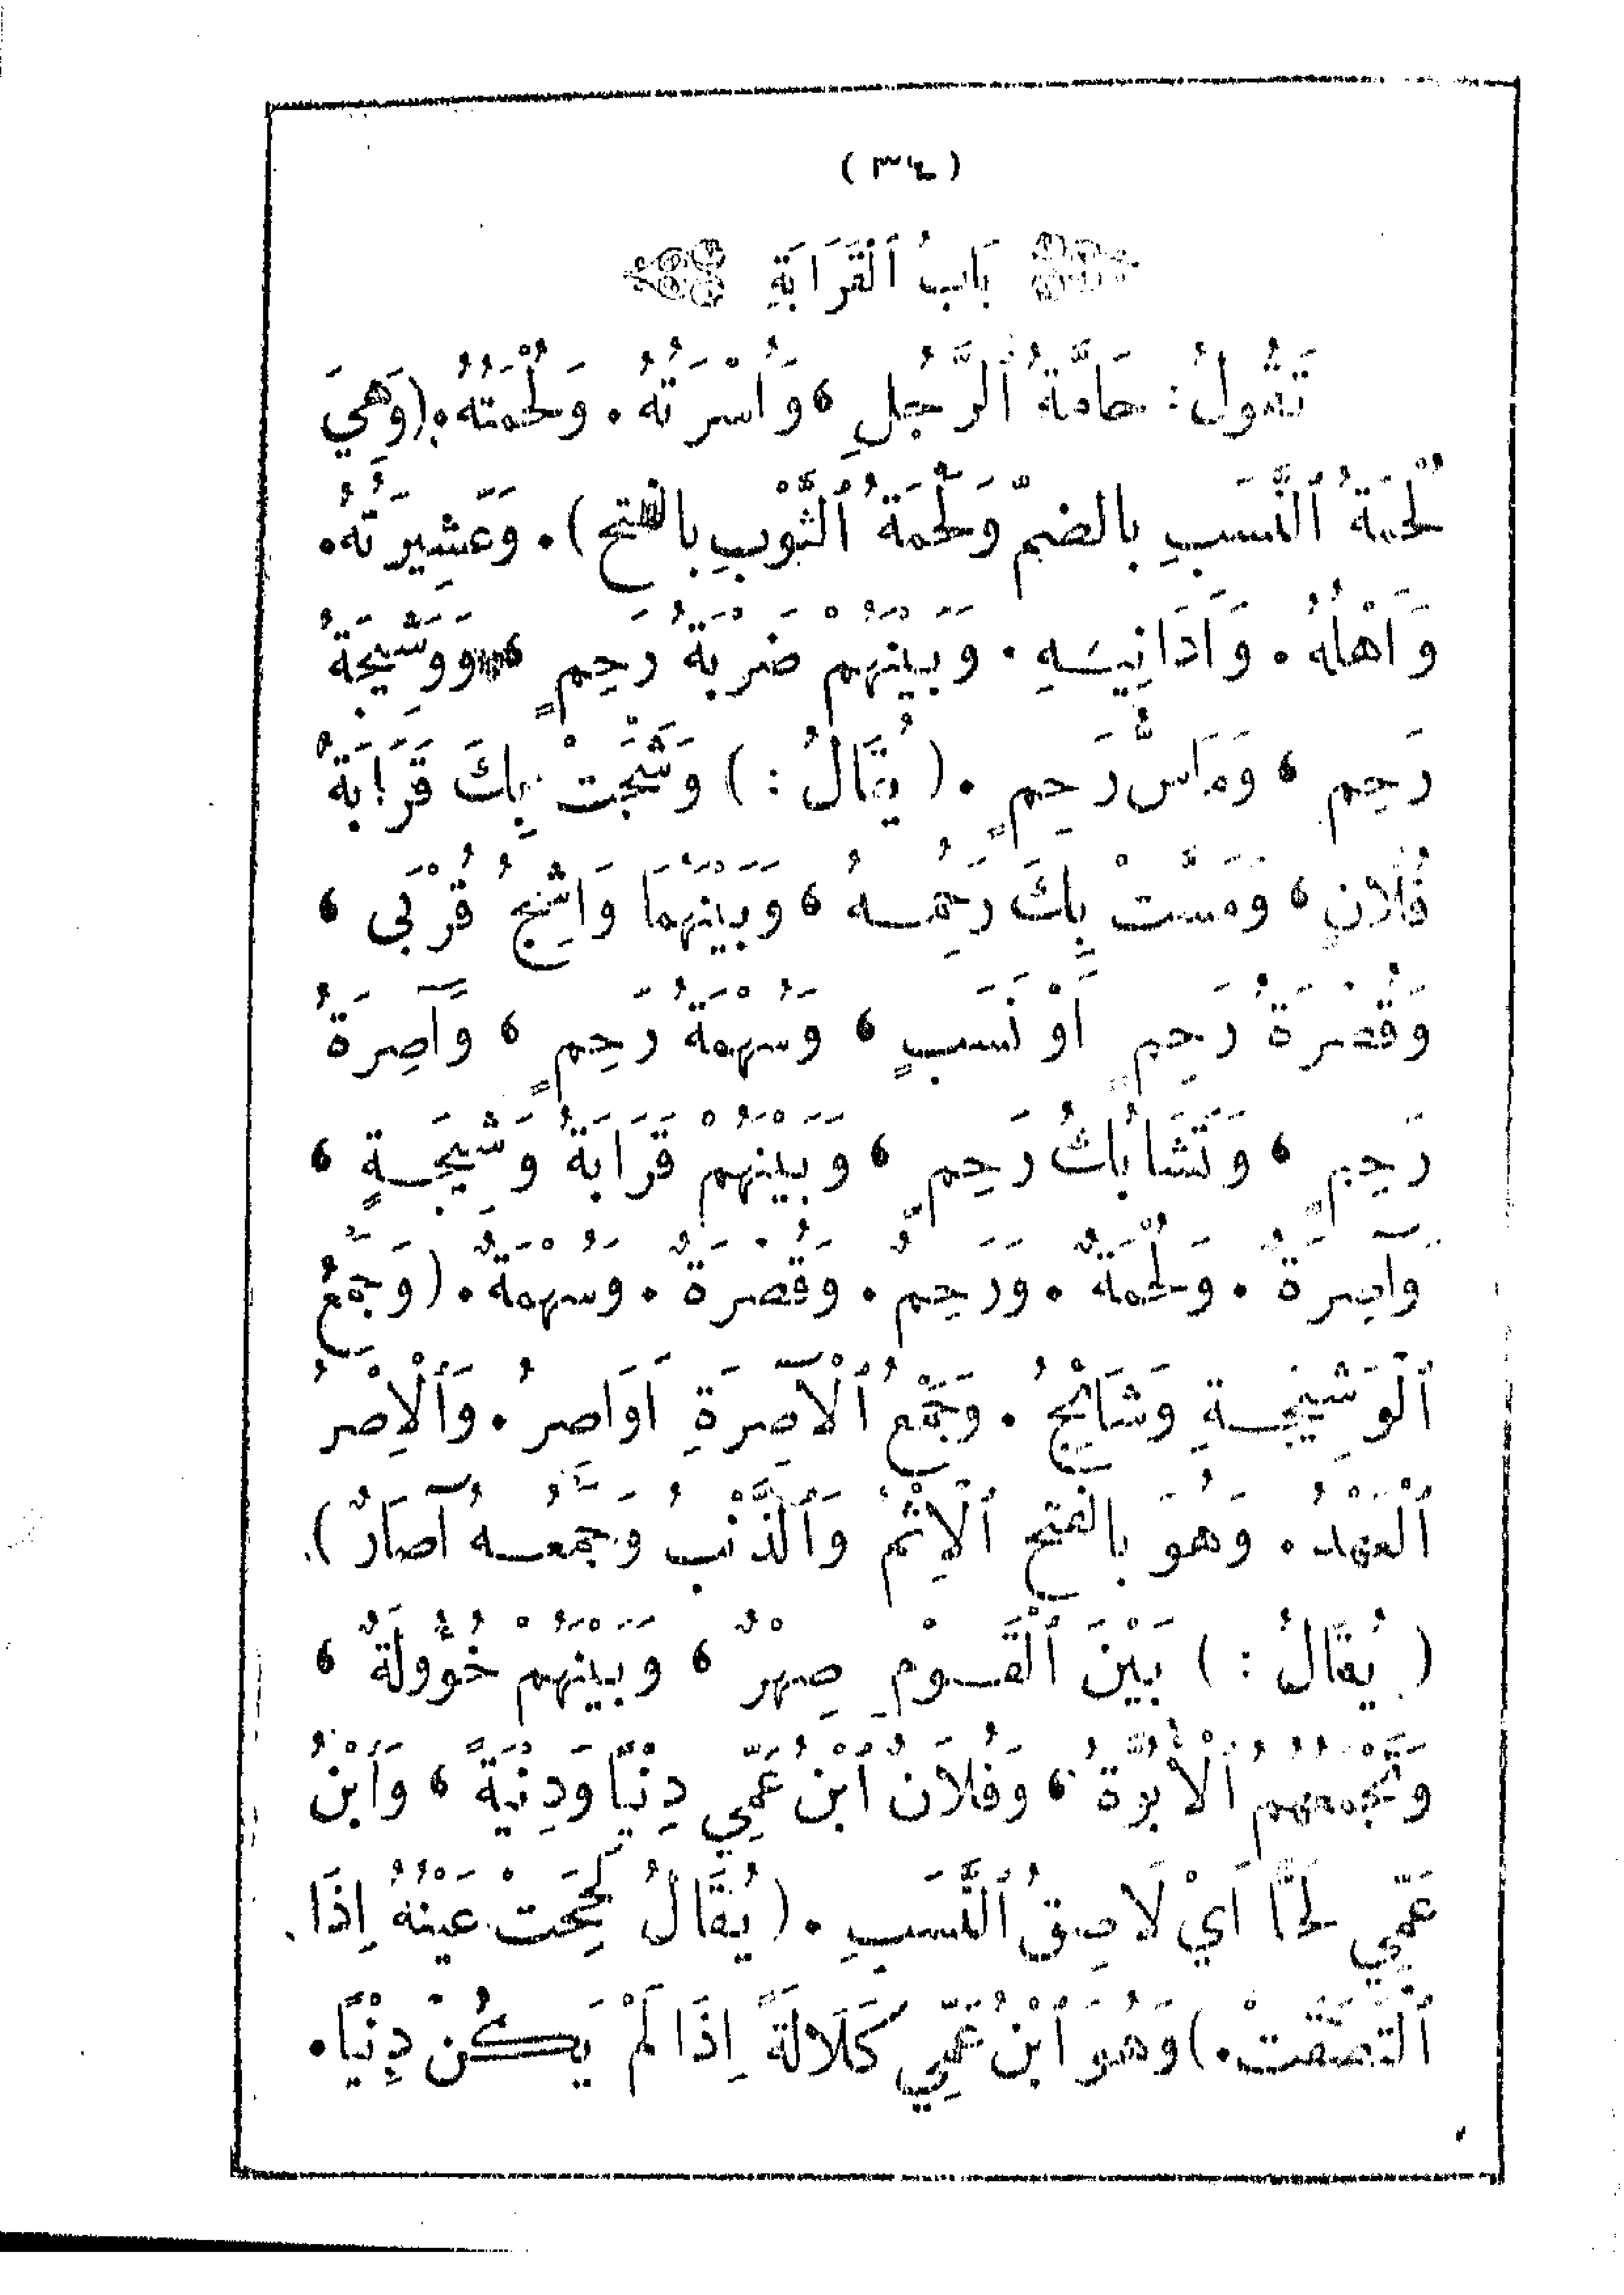 (٣٤)
بَابُ ٱلْقَرَابَةِ
تَقُولُ: حَامَّةُ ٱلرَّجُلِ، وَأُسْرَتُهُ. وَلُحْمَتُهُ. (وَهِيَ
لُحْمَةُ ٱلنَّسَبِ بالضمّ وَلَحْمَةُ ٱلثَّوْبِ بالفتح). وَعَشِيرَتُهُ.
وَاَهْلُهُ. وَاَدَانِيهِ. وَبَيْنَهُمْ ضَرْبَةُ رَحِمٍ، وَوَشِيجَةُ
رَحِمٍ، وَمَاسُّ رَحِمٍ. (يُقَالُ:) وَشَجَتْ بِكَ قَرَابَةُ
فُلَانٍ، وَمَسَّتْ بِكَ رَحِمُهُ، وَبَيْنَهُمَا وَاشِجُ قُرْبَى،
وَقُصْرَةُ رَحِمٍ اَوْ نَسَبٍ، وَسُهْمَةُ رَحِمٍ، وَآصِرَةُ
رَحِمٍ، وَتَشَابُكُ رَحِمٍ، وَبَيْنَهُمْ قَرَابَةُ وَشِيجَةٍ،
وَآصِرَةٌ. وَلُحْمَةٌ. وَرَحِمٌ. وَقُصْرَةٌ. وَسُهْمَةٌ. (وَجَمْعُ
ٱلْوَشِيجَةِ وَشَائِجُ. وَجَمْعُ ٱلْآصِرَةِ اَوَاصِرُ. وَٱلْاِصْرُ
ٱلْعَهْدُ. وَهُوَ بالفتح ٱلْاِثْمُ وَٱلذَّنْبُ وَجَمْعُهُ آصَارٌ).
(يُقَالُ:) بَيْنَ ٱلْقَوْمِ صِهْرٌ، وَبَيْنَهُمْ خُؤُولَةٌ،
وَتَجْمَعُهُمُ ٱلْأُبُوَّةُ، وَفُلَانٌ ٱبْنُ عَمِّي دِنْيًا وَدِنْيَةً، وَٱبْنُ
عَمِّي لَحًّا اَيْ لَاصِقُ ٱلنَّسَبِ. (يُقَالُ لَحِحَتْ عَيْنُهُ اِذَا
ٱلْتَصَقَتْ.) وَهُوَ ٱبْنُ عَمِّي كَلَالَةً اِذَا لَمْ يَكُنْ دِنْيًا.